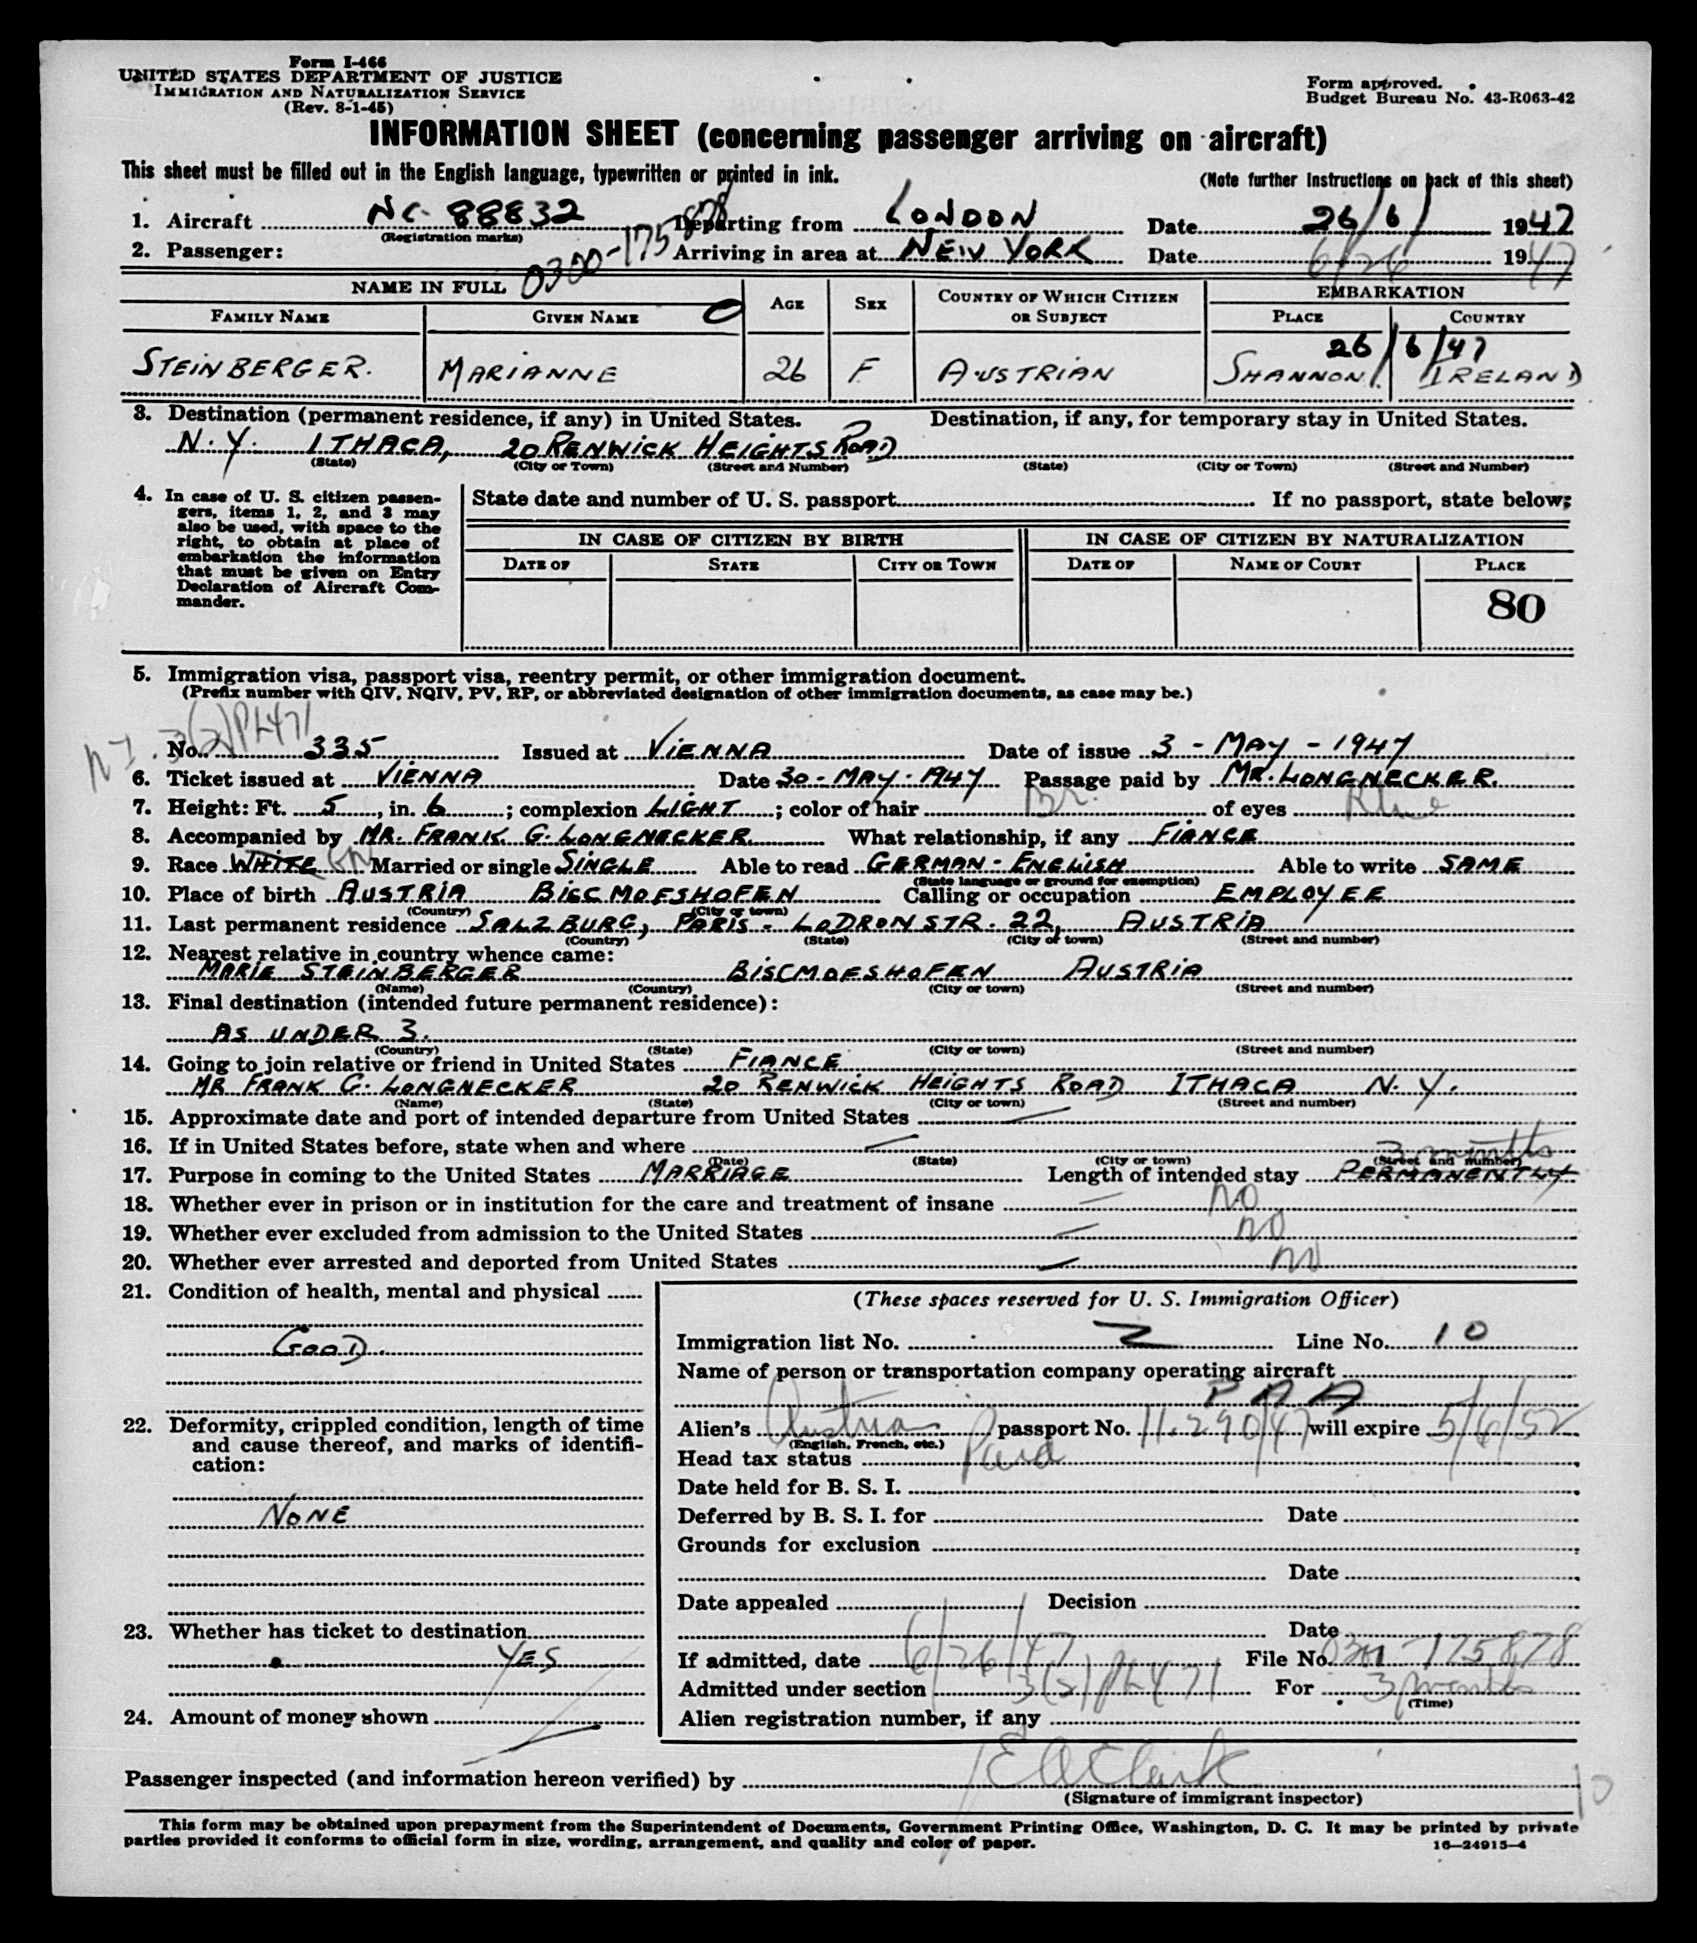 Form I-466
UNITED STATES DEPARTMENT OF JUSTICE
IMMIGRATION AND NATURALIZATION SERVICE
(Rev. 8-1-45)
Form approved.
Budget Bureau No. 43-R063-42
INFORMATION SHEET (concerning passenger arriving on aircraft)
This sheet must be filled out in the English language, typewritten or printed in ink.
(Note further instructions on back of this sheet)
1. Aircraft NC-88832 Departing from LONDON Date 26/6/ 1947
(Registration marks)
0300-175878
2. Passenger: Arriving in area at NEW YORK Date 6/26 1947
NAME IN FULL AGE SEX COUNTRY OF WHICH CITIZEN OR SUBJECT EMBARKATION
FAMILY NAME GIVEN NAME PLACE COUNTRY
26/6/47
STEINBERGER. MARIANNE 26 F AUSTRIAN SHANNON IRELAND
3. Destination (permanent residence, if any) in United States. Destination, if any, for temporary stay in United States.
N.Y. ITHACA, 20 RENWICK HEIGHTS ROAD
(State) (City or Town) (Street and Number) (State) (City or Town) (Street and Number)
4. In case of U. S. citizen passen-
gers, items 1, 2, and 3 may
also be used, with space to the
right, to obtain at place of
embarkation the information
that must be given on Entry
Declaration of Aircraft Com-
mander.
State date and number of U. S. passport If no passport, state below:
IN CASE OF CITIZEN BY BIRTH IN CASE OF CITIZEN BY NATURALIZATION
DATE OF STATE CITY OR TOWN DATE OF NAME OF COURT PLACE
80
5. Immigration visa, passport visa, reentry permit, or other immigration document.
(Prefix number with QIV, NQIV, PV, RP, or abbreviated designation of other immigration documents, as case may be.)
3(2)PL471
No. 335 Issued at VIENNA Date of issue 3-MAY-1947
6. Ticket issued at VIENNA Date 30-MAY-1947 Passage paid by MR. LONGNECKER.
7. Height: Ft. 5, in. 6; complexion LIGHT; color of hair Br. of eyes Blue
8. Accompanied by MR. FRANK G. LONGNECKER What relationship, if any FIANCE
9. Race WHITE Married or single SINGLE Able to read GERMAN-ENGLISH Able to write SAME
(State language or ground for exemption)
10. Place of birth AUSTRIA BISCMOFSHOFEN Calling or occupation EMPLOYEE
(Country) (City or town)
11. Last permanent residence SALZBURG, PARIS-LODRONSTR. 22, AUSTRIA
(Country) (State) (City or town) (Street and number)
12. Nearest relative in country whence came:
MARIE STEINBERGER BISCMOFSHOFEN AUSTRIA
(Name) (Country) (City or town) (Street and number)
13. Final destination (intended future permanent residence):
AS UNDER 3.
(Country) (State) (City or town) (Street and number)
14. Going to join relative or friend in United States FIANCE
MR FRANK G. LONGNECKER 20 RENWICK HEIGHTS ROAD ITHACA N.Y.
(Name) (State) (City or town) (Street and number)
15. Approximate date and port of intended departure from United States —
16. If in United States before, state when and where —
(Date) (State) (City or town) (Street and number)
3 months
17. Purpose in coming to the United States MARRIAGE Length of intended stay PERMANENTLY
18. Whether ever in prison or in institution for the care and treatment of insane — no
19. Whether ever excluded from admission to the United States — no
20. Whether ever arrested and deported from United States — no
21. Condition of health, mental and physical
GOOD.
22. Deformity, crippled condition, length of time
and cause thereof, and marks of identifi-
cation:
NONE
23. Whether has ticket to destination
YES
24. Amount of money shown —
(These spaces reserved for U. S. Immigration Officer)
Immigration list No. 2 Line No. 10
Name of person or transportation company operating aircraft
PAA
Alien's Austrian passport No. 11.290/47 will expire 5/6/52
(English, French, etc.)
Head tax status Paid
Date held for B. S. I.
Deferred by B. S. I. for Date
Grounds for exclusion
Date
Date appealed Decision
Date
If admitted, date 6/26/47 File No. 0300-175878
Admitted under section 3(2)PL471 For 3 months
(Time)
Alien registration number, if any
Passenger inspected (and information hereon verified) by E A Clark
(Signature of immigrant inspector)
10
This form may be obtained upon prepayment from the Superintendent of Documents, Government Printing Office, Washington, D. C. It may be printed by private
parties provided it conforms to official form in size, wording, arrangement, and quality and color of paper.
16—24915-4